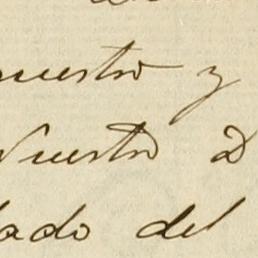 nuestro y
Nuestro D
lado del